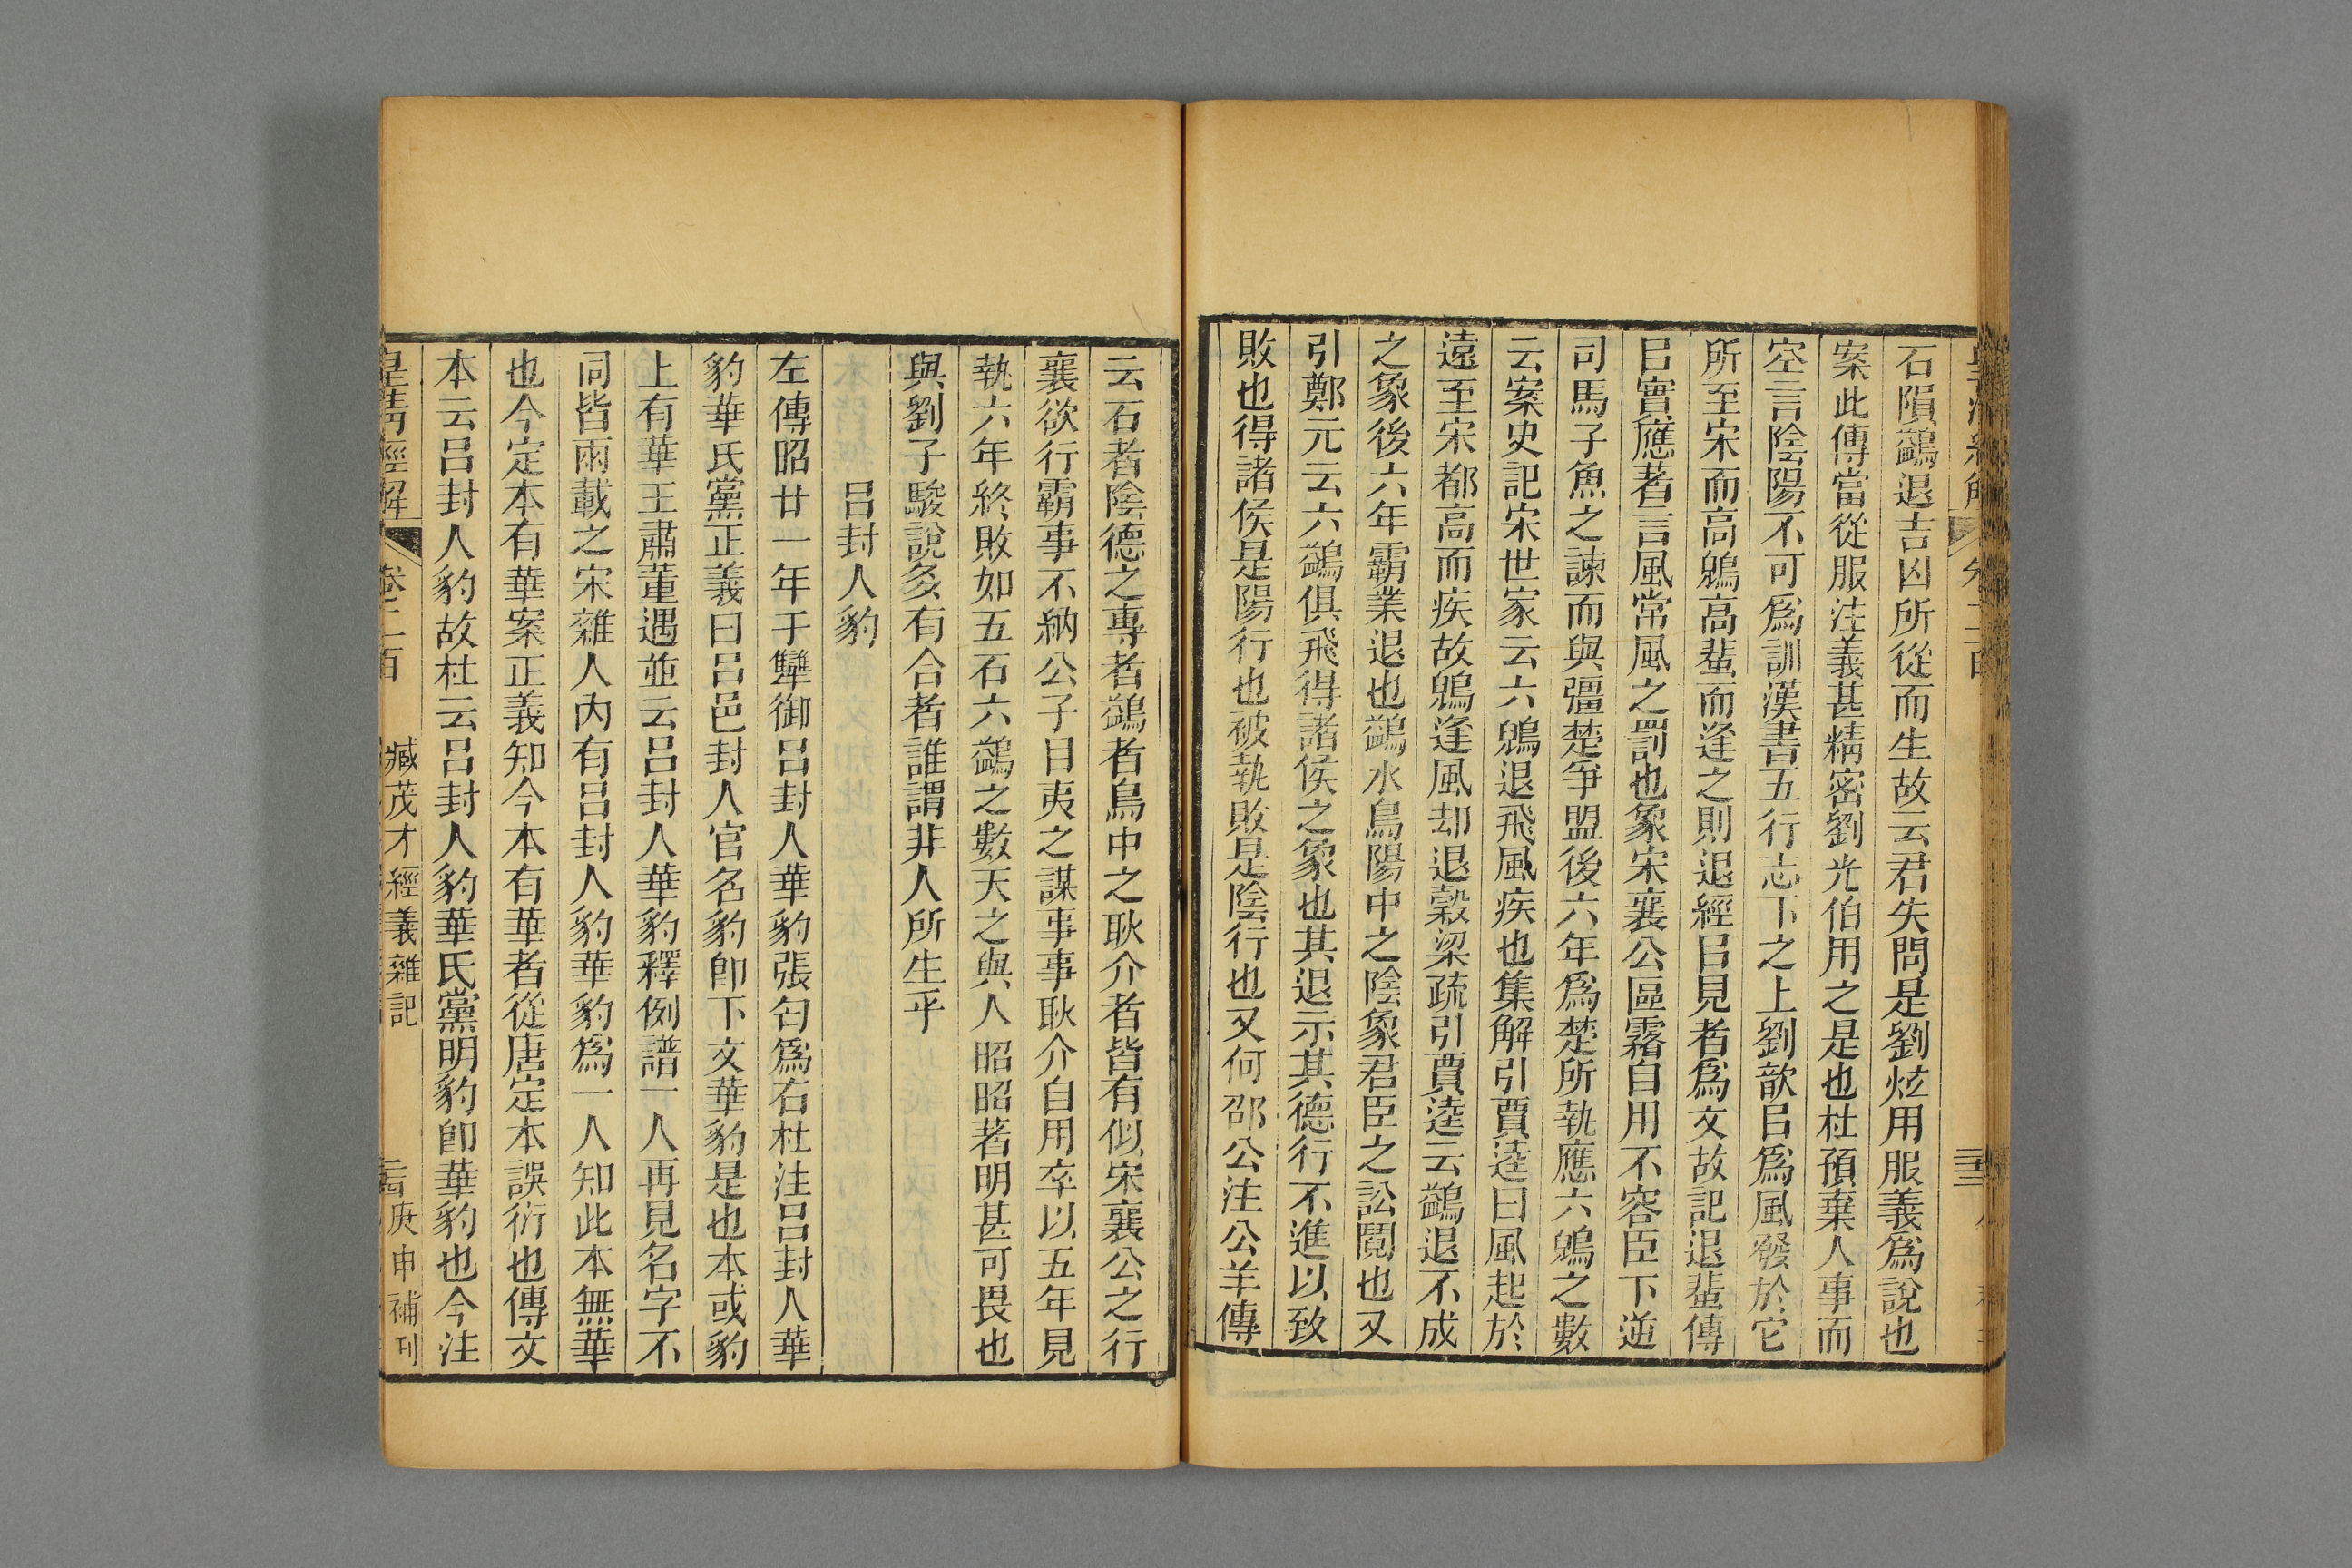 石隕鷁退吉凶所從而生故云君失問是劉炫用服義爲說也
案此傳當從服注義甚精密劉光伯用之是也杜預棄人事而
空言陰陽不可爲訓漢書五行志下之上劉歆㠯爲風發於它
所至宋而高鶂高蜚而逢之則退經㠯見者爲文故記退蜚傳
㠯實應著言風常風之罰也象宋襄公區霿自用不容臣下逆
司馬子魚之諫而與彊楚爭盟後六年爲楚所執應六鶂之數
云案史記宋世家云六鶂退飛風疾也集解引賈逵曰風起於
遠至宋都高而疾故鶂逢風却退穀梁疏引賈逵云鷁退不成
之象後六年霸業退也鷁水鳥陽中之陰象君臣之訟鬩也又
引鄭元云六鷁俱飛得諸侯之象也其退示其德行不進以致
敗也得諸侯是陽行也被執敗是陰行也又何邵公注公羊傳
云石者陰德之專者鷁者鳥中之耿介者皆有似宋襄公之行
襄欲行霸事不納公子目夷之謀事事耿介自用卒以五年見
執六年終敗如五石六鷁之數天之與人昭昭著明甚可畏也
與劉子駿說多有合者誰謂非人所生乎
呂封人豹
左傳昭廿一年于犫御呂封人華豹張匄爲右杜注呂封人華
豹華氏黨正義曰呂邑封人官名豹卽下文華豹是也本或豹
上有華王肅董遇並云呂封人華豹釋例譜一人再見名字不
同皆兩載之宋雜人內有呂封人豹華豹爲一人知此本無華
也今定本有華案正義知今本有華者從唐定本誤衍也傳文
本云呂封人豹故杜云呂封人豹華氏黨明豹卽華豹也今注
皇清經解 卷二百 臧茂才經義雜記 庚申補刊